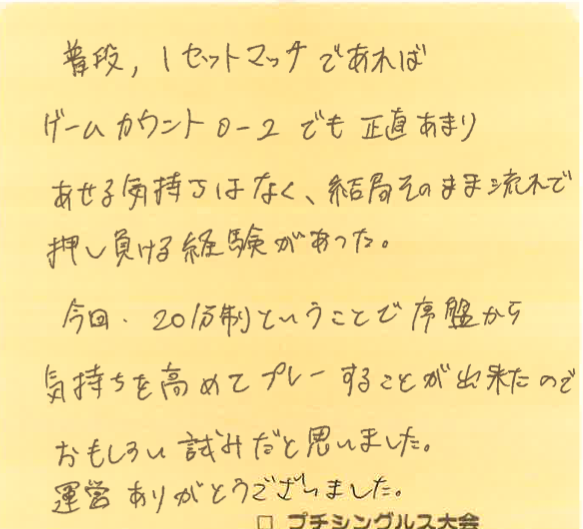 普段, 1セットマッチであれば
ゲームカウント0-2でも正直あまり
あせる気持ちはなく、結局そのまま流れで
押し負ける経験があった。
今回、20分制ということで序盤から
気持ちを高めてプレーすることが出来たので
おもしろい試みだと思いました。
運営ありがとうございました。
□ プチシングルス大会